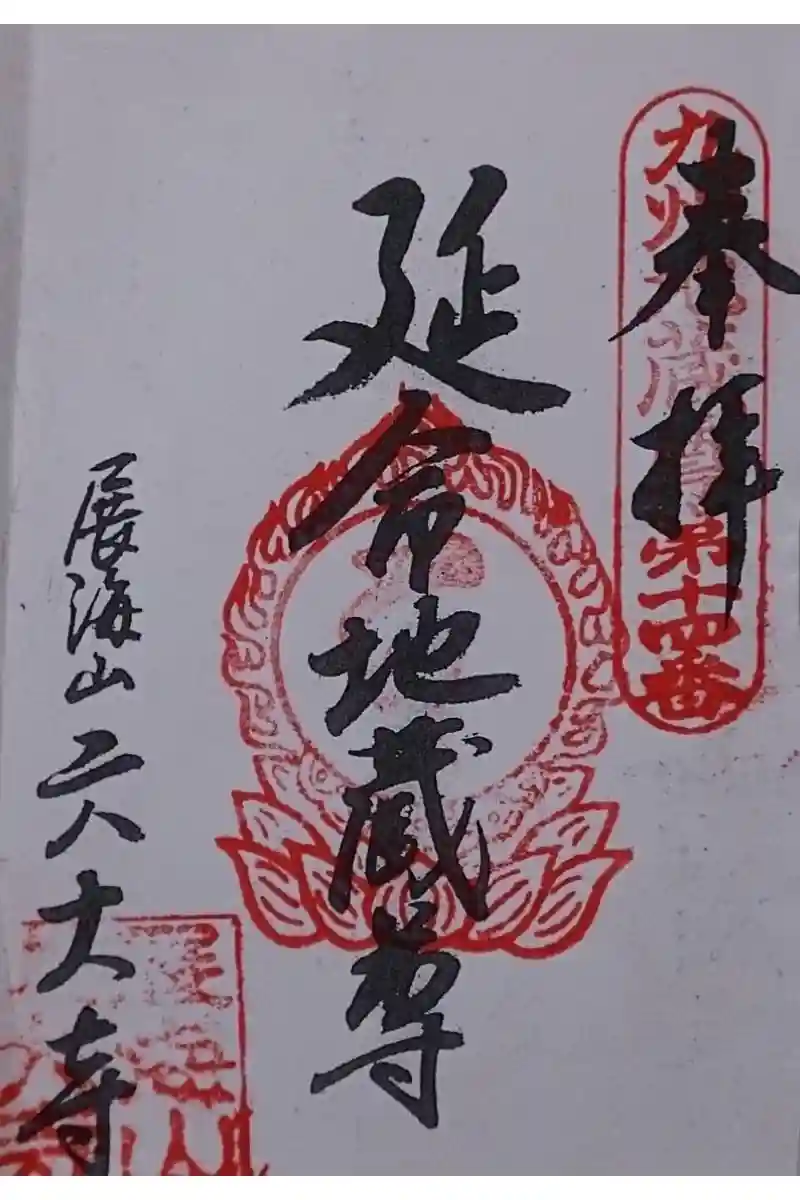 奉拝
九州地蔵尊第十四番
延命地蔵尊
展海山 六大寺